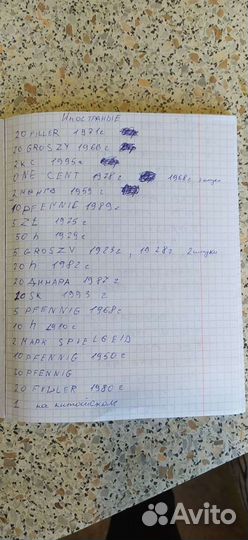 Иностраные
20 FILLER 1971 г
10 GROSZY 1960 г
2 КС 1995 г
ONE CENT 1978 г 1968 г
2 МАРКА 1959 г
10 PFENNIG 1989 г
5 ZŁ 1975 г
50 h 1979 г
5 GROSZY 1923 г, 1928 г 2 штуки
20 h 1982 г
20 ДИНАРА 1987 г
10 SK 1993 г
5 PFENNIG 1968 г
10 h 1910 г
2 МАРК SPIELGELD
10 PFENNIG 1950 г
10 PFENNIG
20 FILLER 1980 г
1 на китайском
Avito